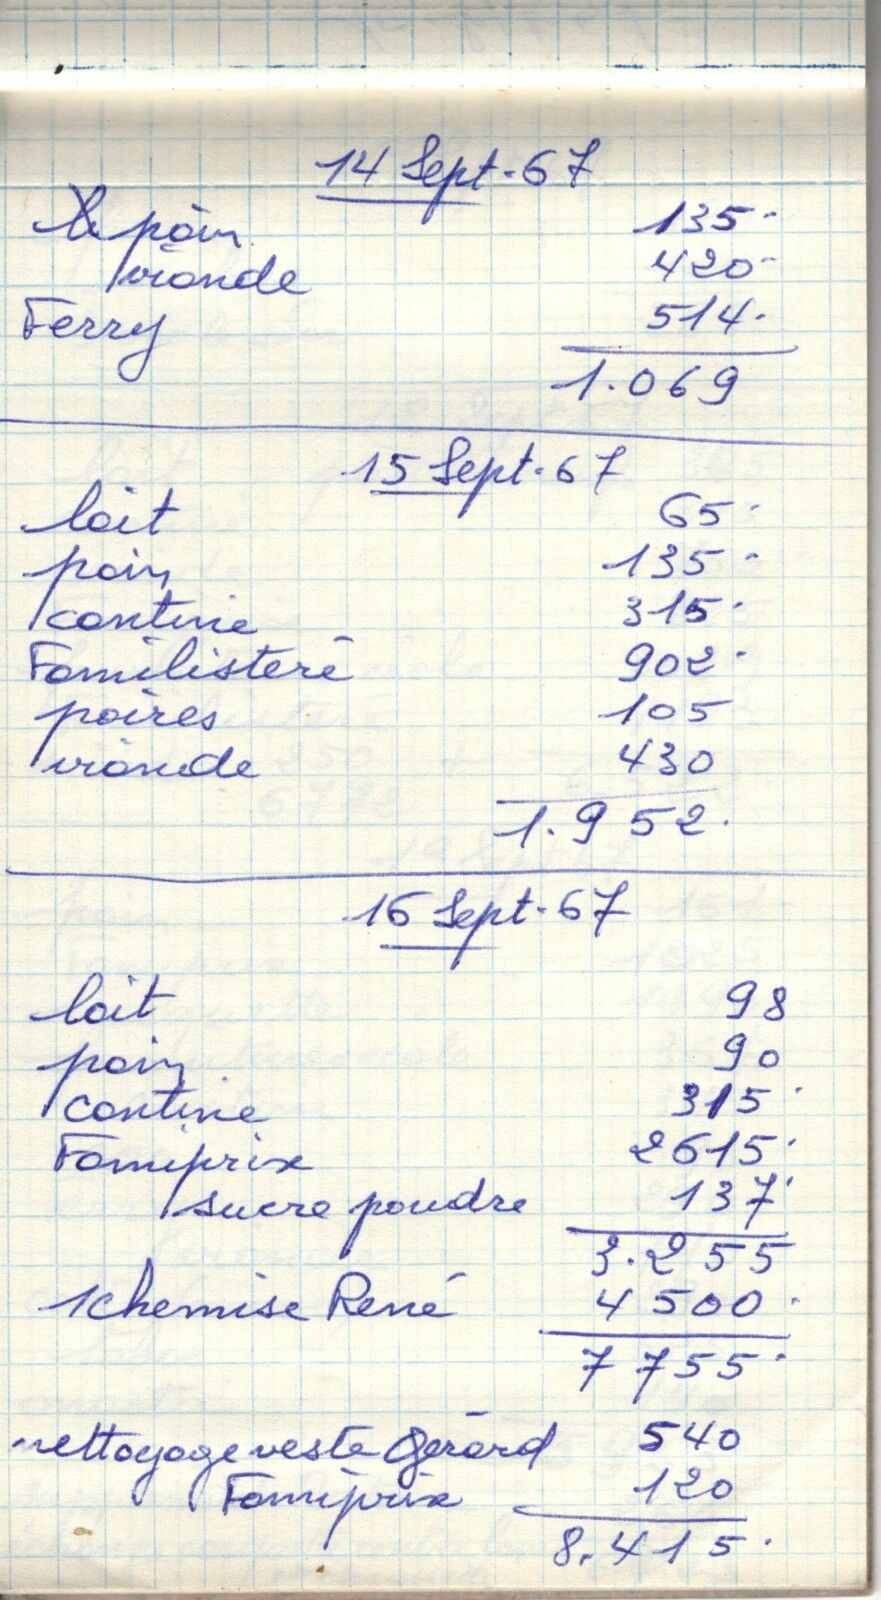 14 Sept. 67
pain 135.
viande 420
Ferry 514.
1.069
15 Sept. 67
lait 65.
pain 135.
cantine 315.
Familistère 902.
poires 105
viande 430
1.952.
16 Sept. 67
lait 98
pain 90
cantine 315.
Famiprix 2615.
sucre poudre 137.
3.255
1 chemise René 4500.
7755.
nettoyage veste Gérard 540
Famiprix 120
8.415.